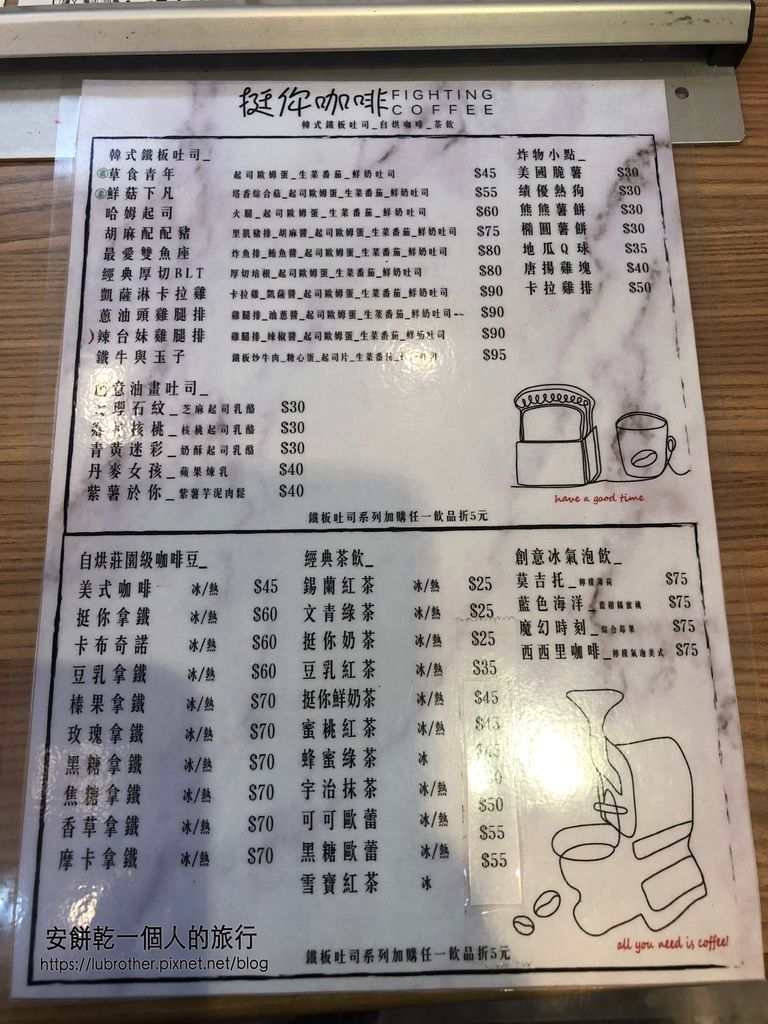 挺你咖啡 FIGHTING COFFEE
韓式鐵板吐司_自烘咖啡_茶飲
韓式鐵板吐司_
草食青年 起司歐姆蛋_生菜番茄_鮮奶吐司 $45
鮮菇下凡 塔香綜合菇_起司歐姆蛋_生菜番茄_鮮奶吐司 $55
哈姆起司 火腿_起司歐姆蛋_生菜番茄_鮮奶吐司 $60
胡麻配配豬 里肌豬排_胡麻醬_起司歐姆蛋_生菜番茄_鮮奶吐司 $75
最愛雙魚座 炸魚排_鮪魚醬_起司歐姆蛋_生菜番茄_鮮奶吐司 $80
經典厚切BLT 厚切培根_起司歐姆蛋_生菜番茄_鮮奶吐司 $80
凱薩淋卡拉雞 卡拉雞_凱薩醬_起司歐姆蛋_生菜番茄_鮮奶吐司 $90
蔥油頭雞腿排 雞腿排_油蔥醬_起司歐姆蛋_生菜番茄_鮮奶吐司 $90
辣台妹雞腿排 雞腿排_辣椒醬_起司歐姆蛋_生菜番茄_鮮奶吐司 $90
鐵牛與玉子 鐵板炒牛肉_糖心蛋_起司片_生菜番茄 $95
炸物小點_
美國脆薯 $30
績優熱狗 $30
熊熊薯餅 $30
橢圓薯餅 $30
地瓜Q球 $35
唐揚雞塊 $40
卡拉雞排 $50
意油畫吐司_
理石紋_芝麻起司乳酪 $30
核桃_核桃起司乳酪 $30
青黃迷彩_奶酥起司乳酪 $30
丹麥女孩_蘋果煉乳 $40
紫薯於你_紫薯芋泥肉鬆 $40
have a good time
鐵板吐司系列加購任一飲品折5元
自烘莊園級咖啡豆_
美式咖啡 冰/熱 $45
挺你拿鐵 冰/熱 $60
卡布奇諾 冰/熱 $60
豆乳拿鐵 冰/熱 $60
榛果拿鐵 冰/熱 $70
玫瑰拿鐵 冰/熱 $70
黑糖拿鐵 冰/熱 $70
焦糖拿鐵 冰/熱 $70
香草拿鐵 冰/熱 $70
摩卡拿鐵 冰/熱 $70
經典茶飲_
錫蘭紅茶 冰/熱 $25
文青綠茶 冰/熱 $25
挺你奶茶 冰/熱 $25
豆乳紅茶 冰/熱 $35
挺你鮮奶茶 冰/熱 $45
蜜桃紅茶 冰/熱 $45
蜂蜜綠茶 冰
宇治抹茶 冰/熱
可可歐蕾 冰/熱 $50
黑糖歐蕾 冰/熱 $55
雪寶紅茶 冰 $55
創意冰氣泡飲_
莫吉托_檸檬薄荷 $75
藍色海洋_藍柑橘蜜桃 $75
魔幻時刻_綜合莓果 $75
西西里咖啡_檸檬氣泡美式 $75
all you need is coffee!
鐵板吐司系列加購任一飲品折5元
安餅乾一個人的旅行
https://lubrother.pixnet.net/blog